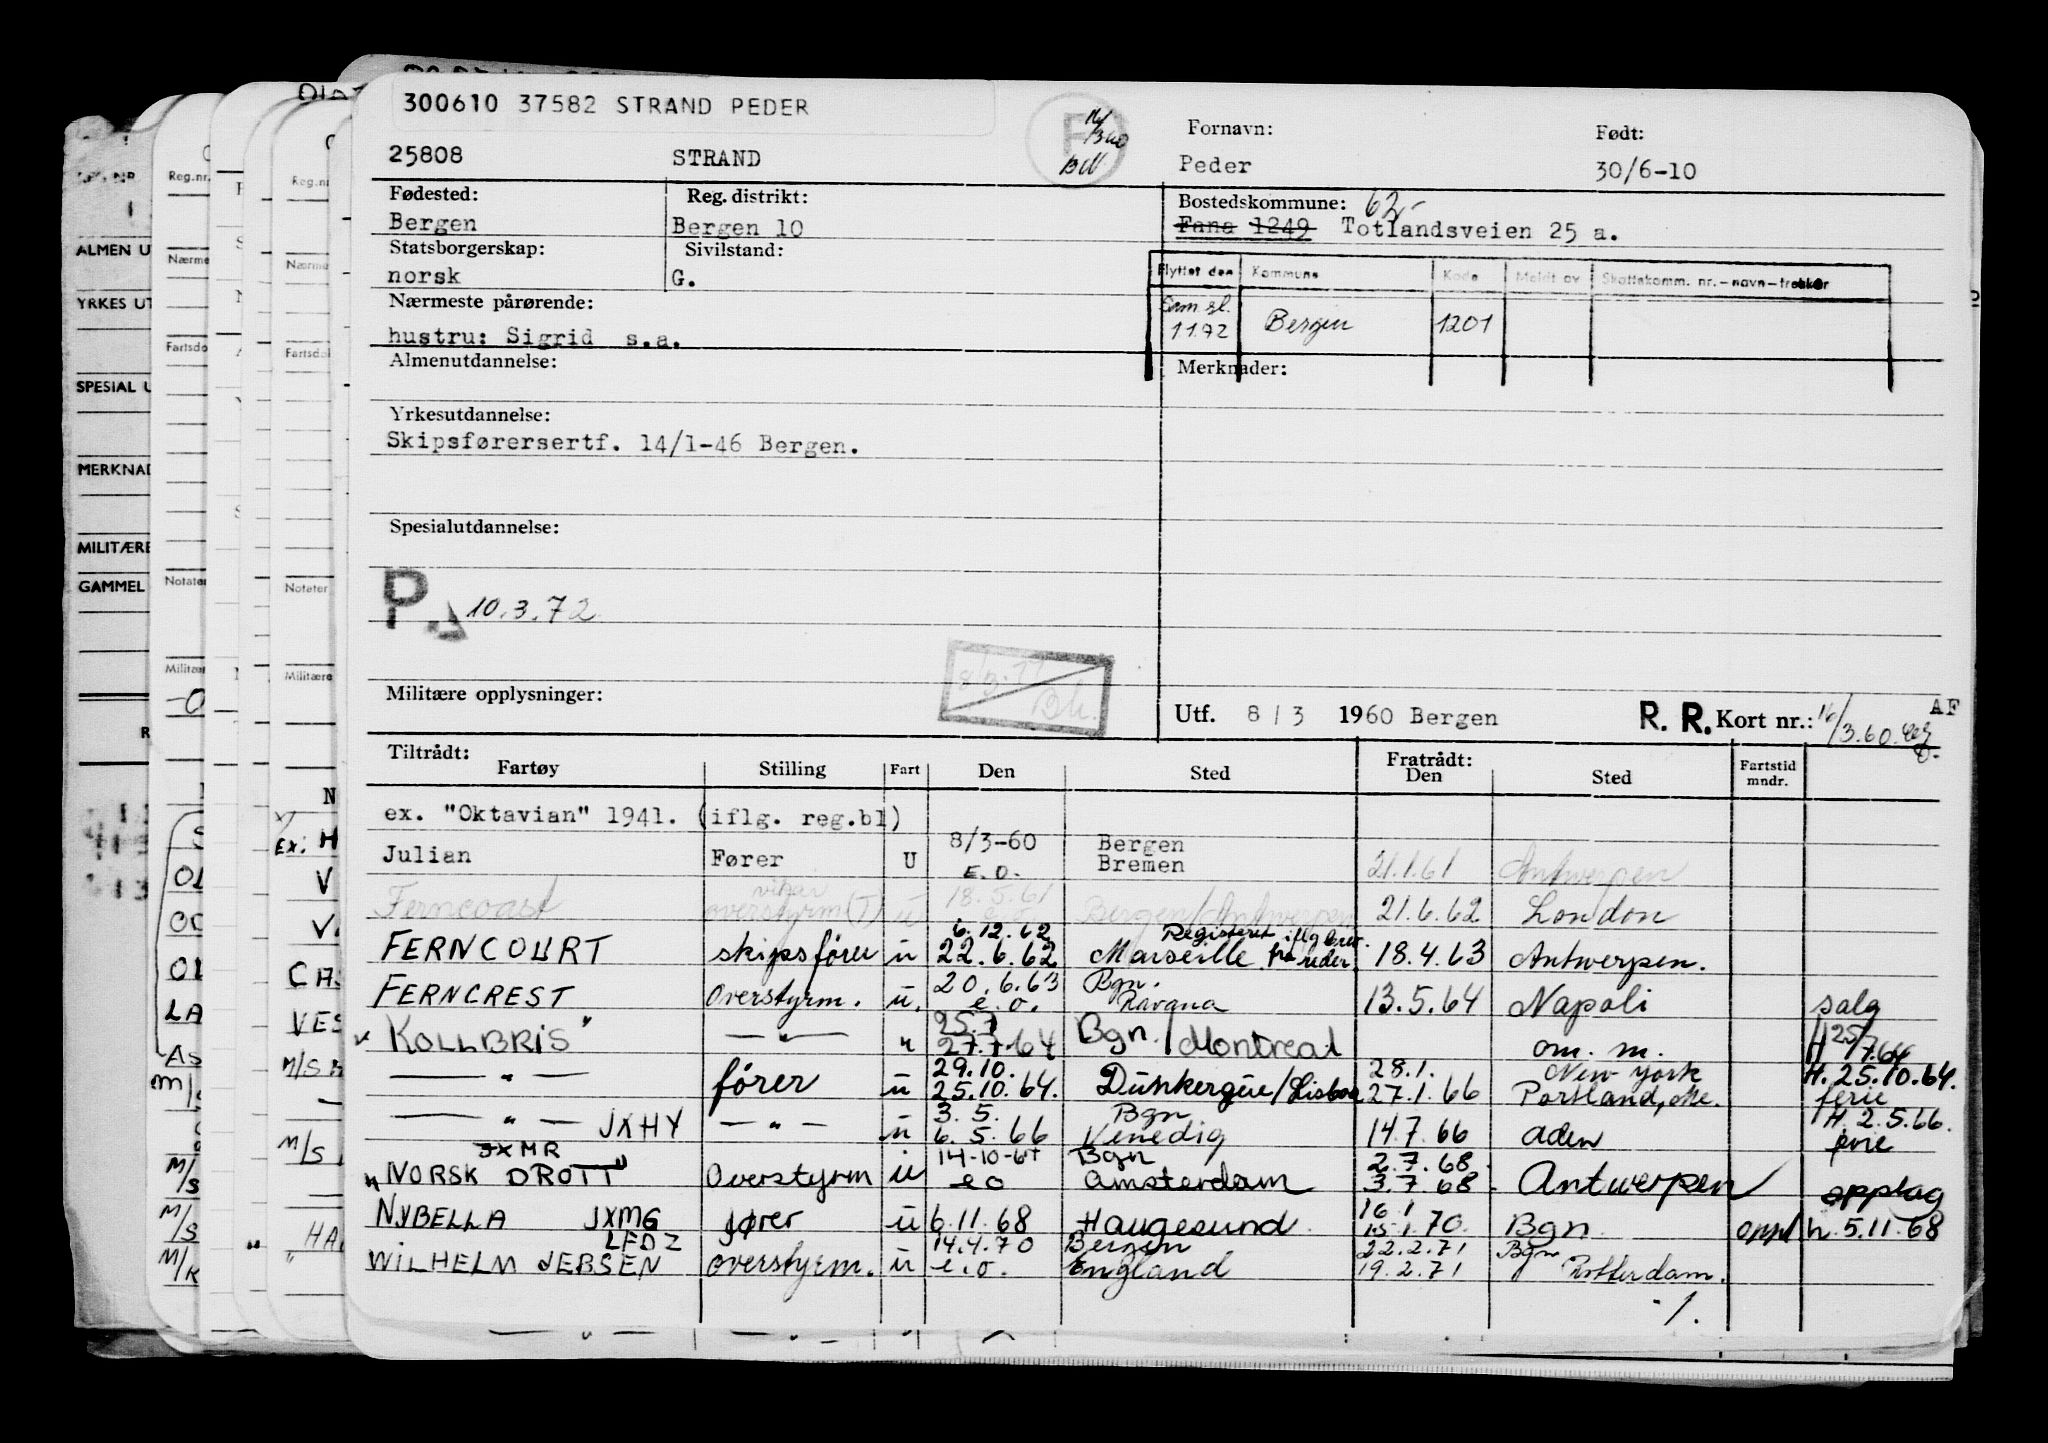 300610 37582 STRAND PEDER
25808 STRAND
Fornavn: Født:
Peder 30/6-10
Fødested: Reg. distrikt: Bostedskommune: 62,-
Bergen Bergen 10 Fana 1249 Totlandsveien 25 a.
Statsborgerskap: Sivilstand:
norsk G.
Flyttet den Kommune Kode Meldt av Skattekomm. nr.-navn-trekker
Nærmeste pårørende:
1172 Bergen 1201
hustru: Sigrid s.a.
Almenutdannelse: Merknader:
Yrkesutdannelse:
Skipsførersertf. 14/1-46 Bergen.
Spesialutdannelse:
P. 10.3.72
Militære opplysninger:
Utf. 8/3 1960 Bergen R. R. Kort nr.: 16/3.60. AF
Tiltrådt: Fratrådt:
Fartøy Stilling Fart Den Sted Den Sted Fartstid mndr.
ex. "Oktavian" 1941. (iflg. reg.bl)
8/3-60 Bergen
Julian Fører U E.O. Bremen 21.1.61 Antwerpen
vikar 18.5.61
Ferncoast overstyrm(T) u e.o. Bergen/Antwerpen 21.6.62 London
6.12.62 Registrert iflg brev
FERNCOURT skipsfører u 22.6.62 Marseille fra reder. 18.4.63 Antwerpen.
20.6.63 Bgn.
FERNCREST Overstyrm. u. e.o. Ravana 13.5.64 Napoli salg
25.7 H 25/7.64
"KOLLBRIS" — " — " 27.7.64 Bgn./Montreal om. m.
29.10. 28.1. New York H. 25.10.64.
— " — fører u 25.10.64. Dunkerque/Lisboa 27.1.66 Portland, ferie
3.5. Bgn H. 2.5.66.
— " — JXHY — " — u 6.5.66 Venedig 14.7.66 Aden ferie
JXMR 14-10-67 Bgn 2.7.68.
"NORSK DROTT" Overstyrm u eo Amsterdam 3.7.68. Antwerpen opplag
16.1
NYBELLA JXMG fører u 6.11.68 Haugesund. 15.1.70. Bgn oppl h. 5.11.68
LFDZ 14.4.70 Bergen 22.2.71 Bgn
WILHELM JEBSEN overstyrm. u e.o. England 19.2.71 Rotterdam.
-/.
Reg.nr.
ALMEN U
YRKES UT
SPESIAL U
MERKNAD
MILITÆRE
GAMMEL
Nærme
Fartsdo
Notater
Militær